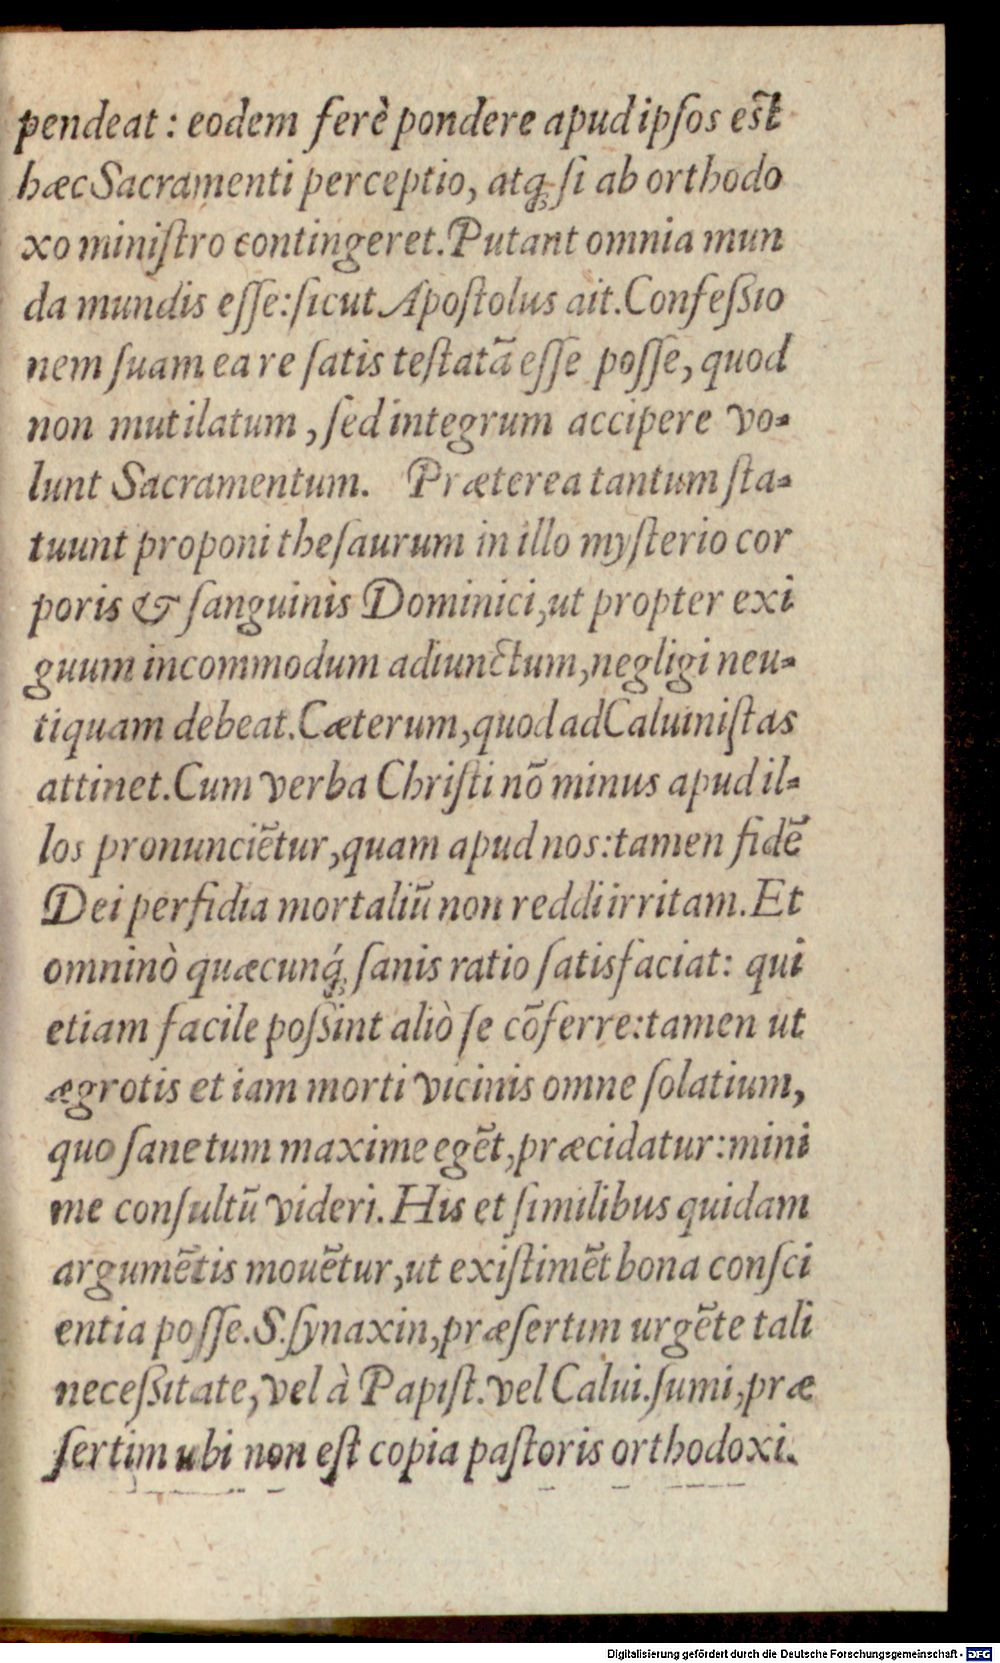 pendeat: eodem ferè pondere apud ipſos est
hæc Sacramenti perceptio, atq; ſi ab orthodo
xo miniſtro contingeret. Putant omnia mun
da mundis eſſe: ſicut Apoſtolus ait. Confeſsio
nem ſuam ea re ſatis teſtatã eſſe poſſe, quod
non mutilatum, ſed integrum accipere vo-
lunt Sacramentum. Præterea tantum ſta-
tuunt proponi theſaurum in illo myſterio cor
poris & ſanguinis Dominici, ut propter exi
guum incommodum adiunctum, negligi neu-
tiquam debeat. Cæterum, quod ad Caluiniſtas
attinet. Cum verba Chriſti nõ minus apud il-
los pronunciẽtur, quam apud nos: tamen fidẽ
Dei perfidia mortaliũ non reddi irritam. Et
omninò quæcunq́; ſanis ratio ſatisfaciat: qui
etiam facile poſsint aliò ſe cõferre: tamen ut
ægrotis et iam morti vicinis omne ſolatium,
quo ſane tum maxime egẽt, præcidatur: mini
me conſultũ videri. His et ſimilibus quidam
argumẽtis mouẽtur, ut exiſtimẽt bona conſci
entia poſſe. S. ſynaxin, præſertim urgẽte tali
neceſsitate, vel à Papiſt. vel Calui. ſumi, præ
ſertim ubi non eſt copia paſtoris orthodoxi.
Digitalisierung gefördert durch die Deutsche Forschungsgemeinschaft - DFG